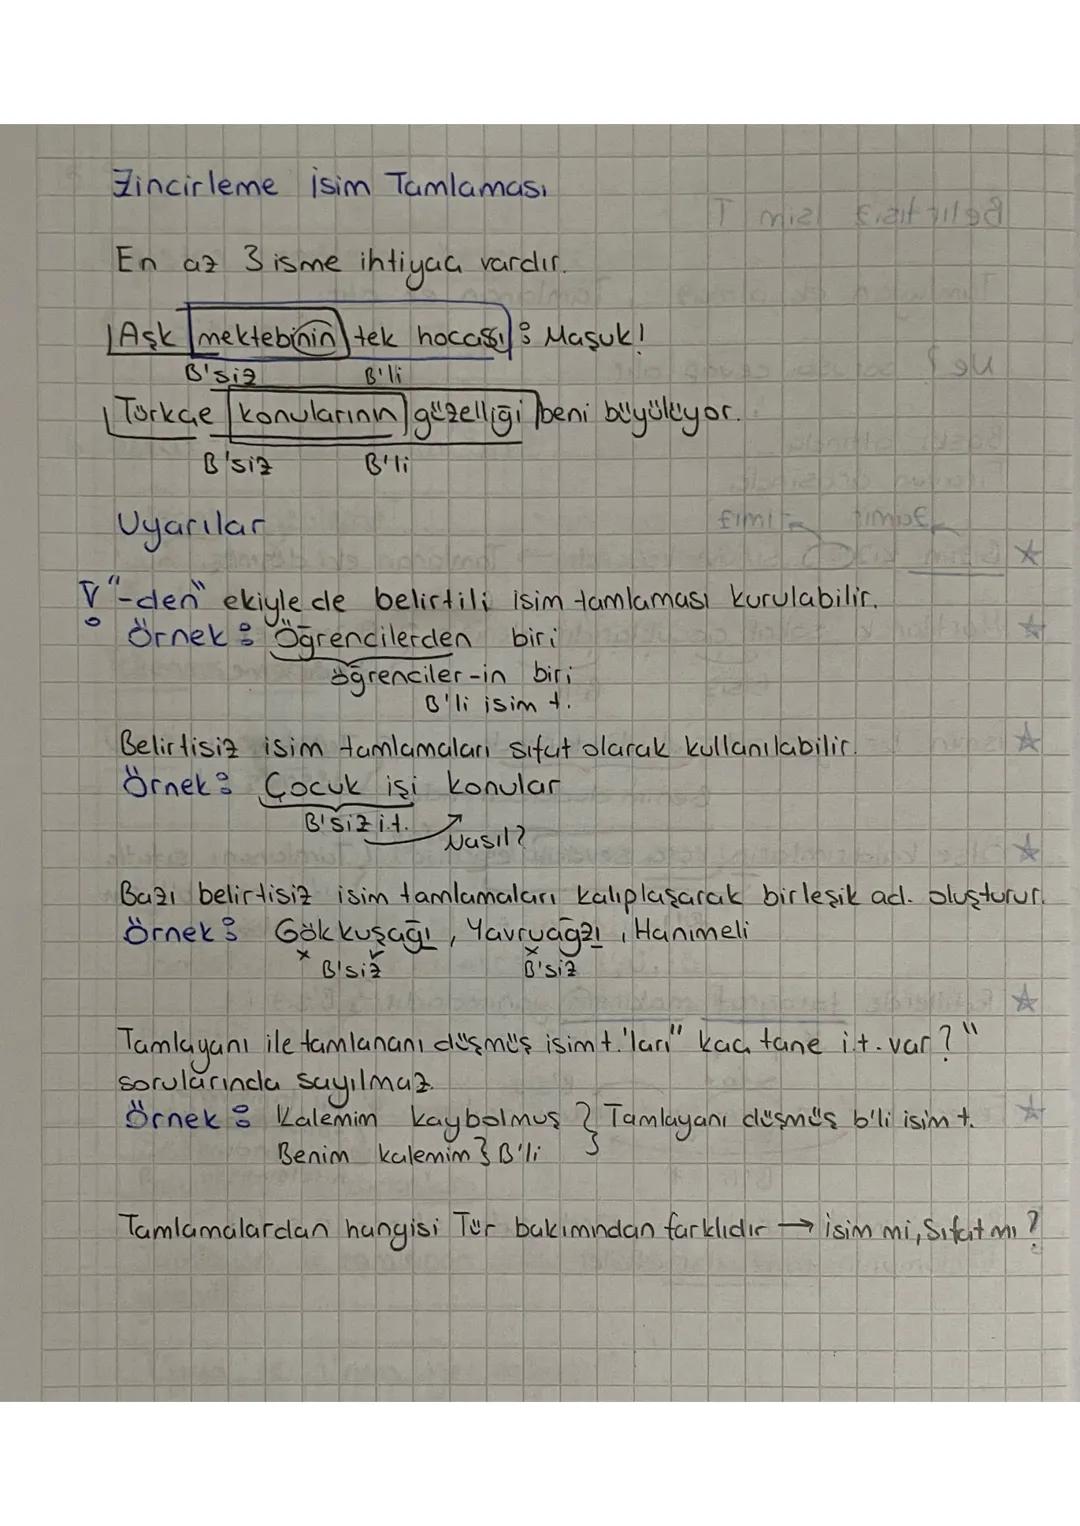 Zincirleme İsim Tamlaması
En az 3 isme ihtiyacı vardır.
Aşk mektebinin tek hocası : Maşuk!
B'siz B'li
Türkçe konularının güzelliği beni büyülüyor.
B'siz B'li
Uyarılar
"-den" ekiyle de belirtili isim tamlaması kurulabilir.
Örnek : Öğrencilerden biri
öğrenciler-in biri
B'li isim t.
Belirtisiz isim tamlamaları sıfat olarak kullanılabilir.
Örnek : Çocuk işi konular
B'siz i.t. Nasıl?
Bazı belirtisiz isim tamlamaları kalıplaşarak birleşik ad. oluşturur.
Örnek : Gökkuşağı, Yavruağzı, Hanımeli
B'siz B'siz
Tamlayanı ile tamlananı düşmüş isim t.'ları "kaç tane i.t. var?"
sorularında sayılmaz.
Örnek : Kalemim kaybolmuş } Tamlayanı düşmüş b'li isim t.
Benim kalemim } B'li
Tamlamalardan hangisi Tür bakımından farklıdır → isim mi, Sıfat mı?